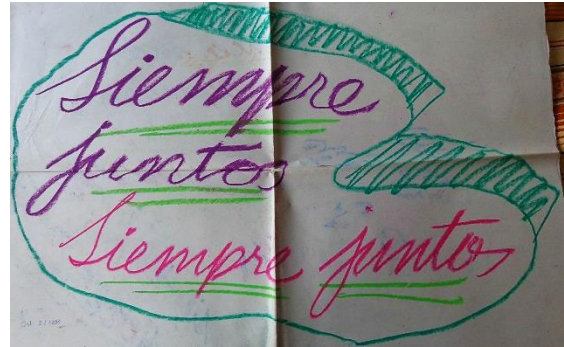 Siempre
juntos
Siempre juntos